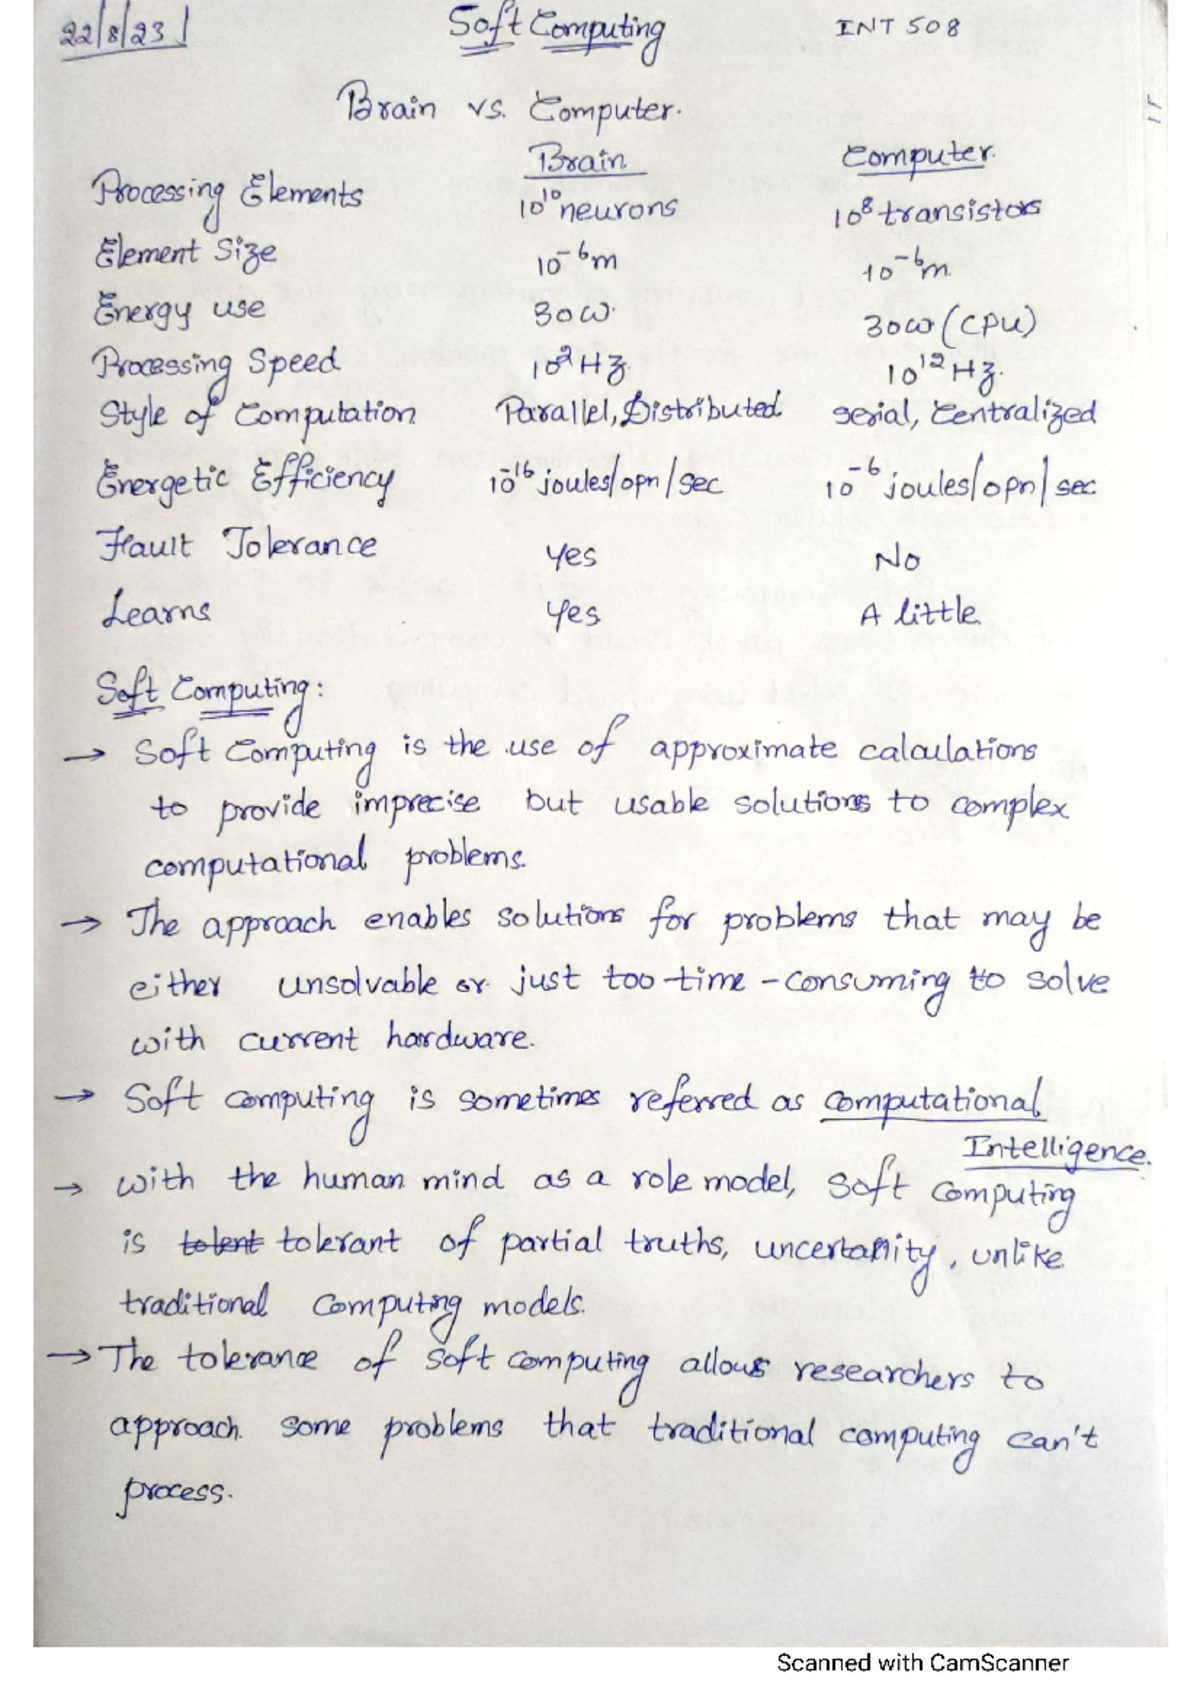 22/8/23
Soft Computing
INT 508
Brain vs. Computer.
Brain Computer.
Processing Elements 10¹⁰ neurons 10⁸ transistors
Element Size 10⁻⁶m 10⁻⁶m
Energy use 30W 30W (CPU)
Processing Speed 10²Hz 10¹²Hz.
Style of Computation Parallel, Distributed serial, Centralized
Energetic Efficiency 10⁻¹⁶ joules/opn/sec 10⁻⁶ joules/opn/sec
Fault Tolerance Yes No
Learns Yes A little
Soft Computing:
→ Soft Computing is the use of approximate calculations
to provide imprecise but usable solutions to complex
computational problems.
→ The approach enables solutions for problems that may be
either unsolvable or just too time-consuming to solve
with current hardware.
→ Soft computing is sometimes referred as computational
Intelligence.
→ with the human mind as a role model, Soft Computing
is tolent tolerant of partial truths, uncertanity, unlike
traditional Computing models.
→ The tolerance of Soft computing allows researchers to
approach some problems that traditional computing can't
process.
Scanned with CamScanner